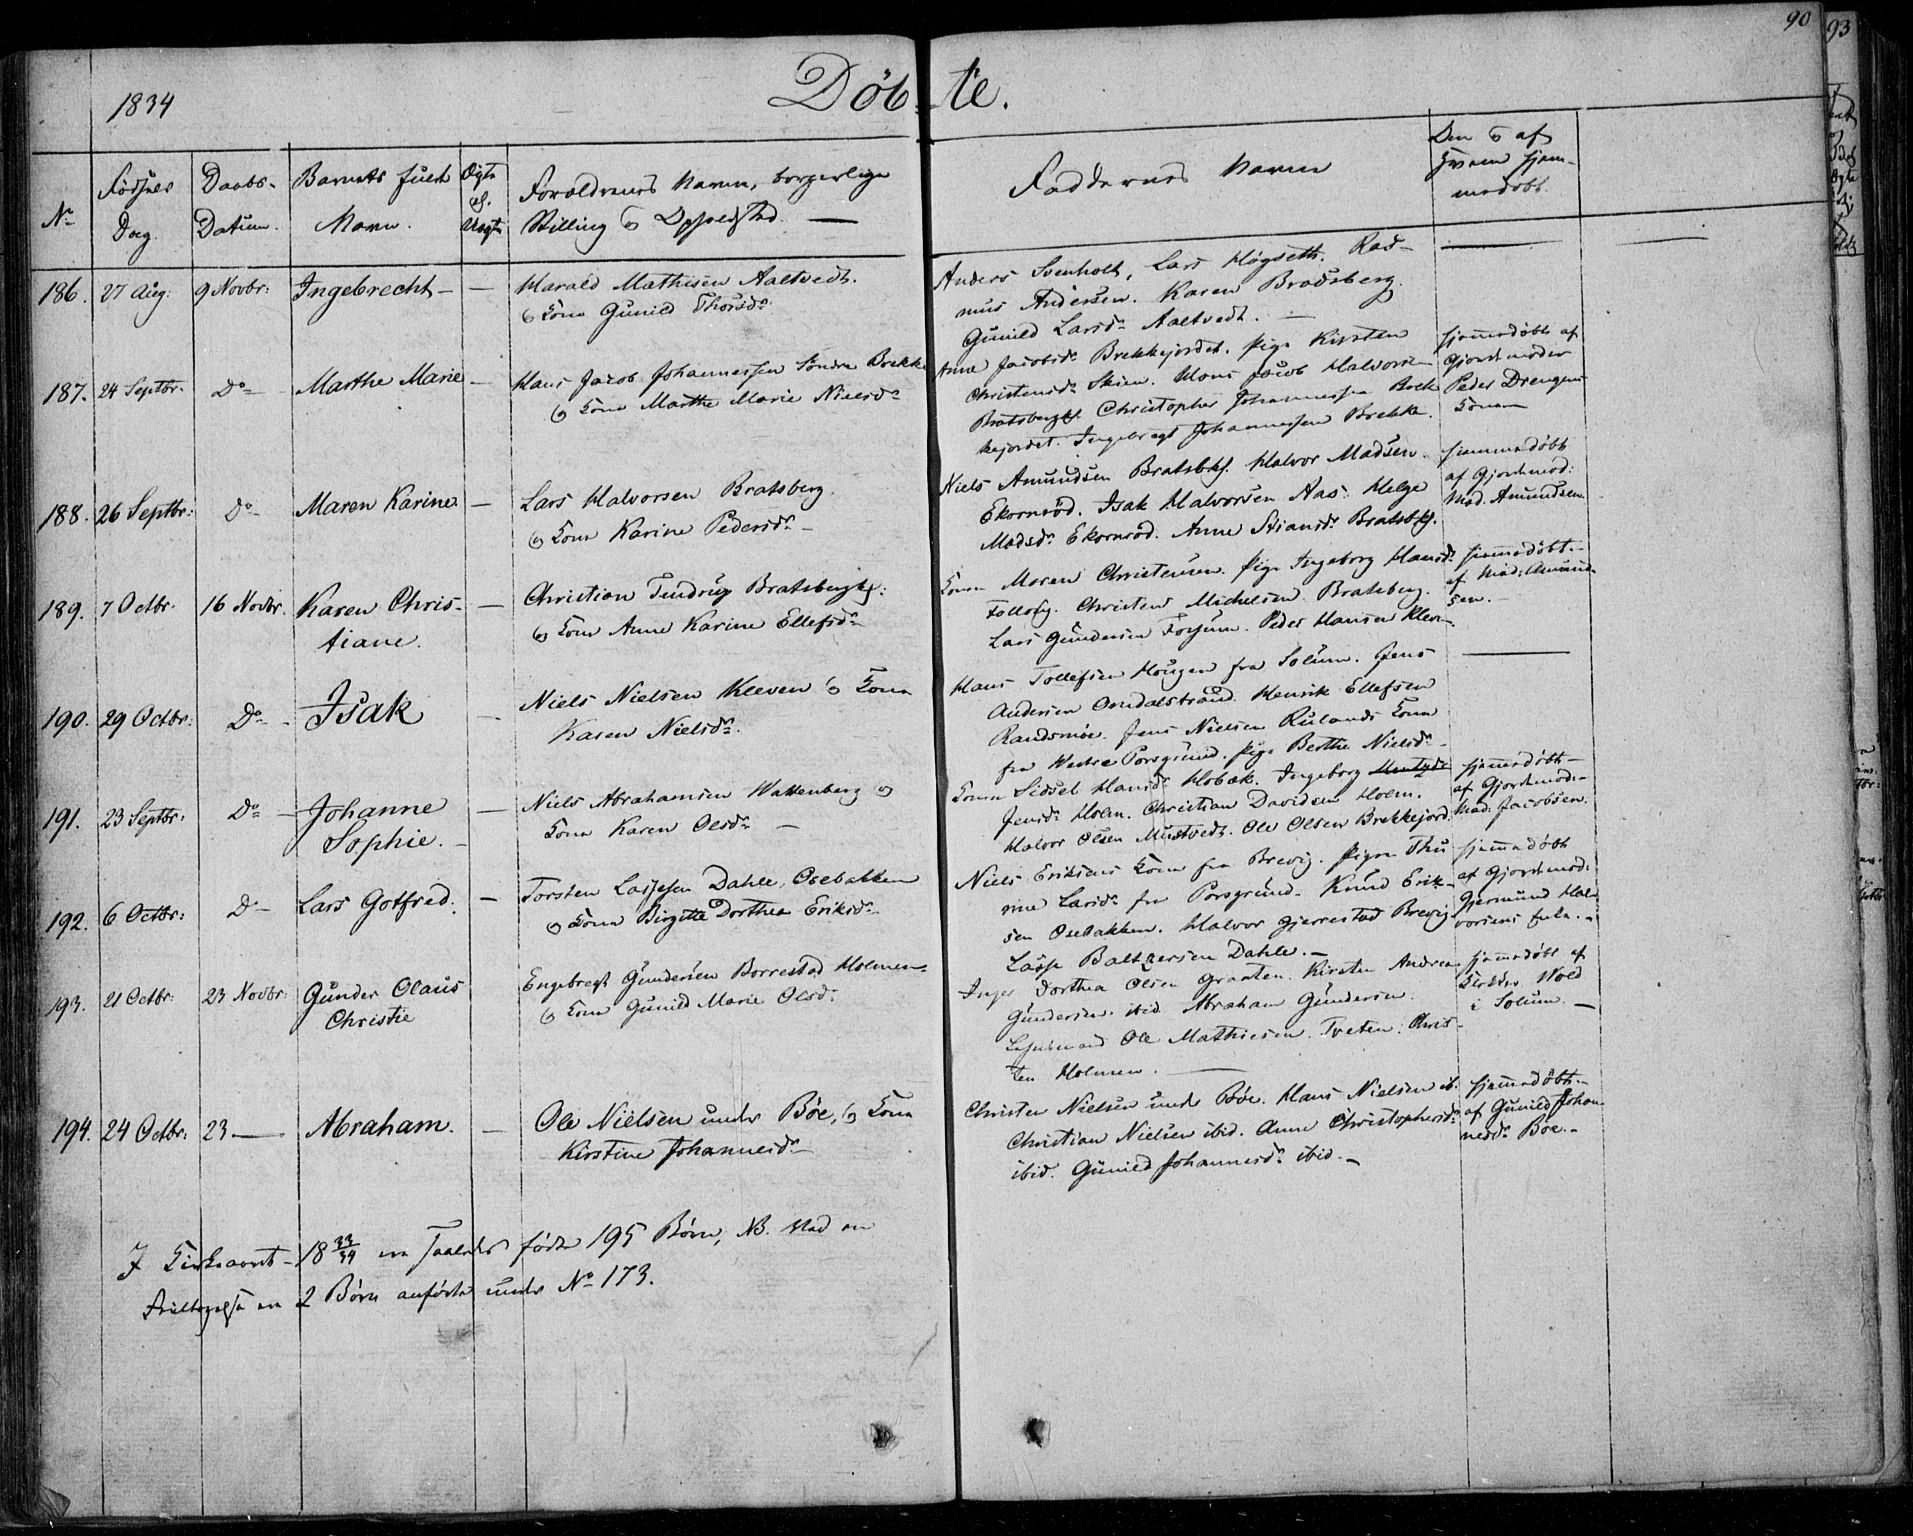 90
93
1834
Døbte.
No
Fødsels
Dag.
Daabs-
Datum.
Barnets fulde
Navn.
Ægte
el.
Uægte
Forældrenes Navn, borgerlige
Stilling og Opholdsted
Faddernes Navne
Den og af
hvem hjem-
medøbt.
186. 27 Aug: 9 Novbr: Ingebrecht – –
Harald Mathisen Aaltvedt.
og Kone Gunild Thorsdr
Anders Svenholt, Lars Høgseth. Ras-
mus Andersen. Karen Bradsberg.
Gunild Larsdr Aaltvedt.
187. 24 Septbr. Do Marthe Marie –
Hans Jacob Johannessen Søndre Brekke
og Kone Marthe Marie Nielsdr
Anne Jacobsdr Brekkejordet. Pige Kirsten
Christensdr Skien. Hans Jacob Halvorsen
Bratsbergkl. Christopher Johannessen Brek-
kejordet. Ingebregt Johannessen Brekke.
hjemmedøbt af
Gjordemoder
Peder Drengens
Kone
188. 26 Septbr: Do Maren Karine –
Lars Halvorsen Bratsberg.
og Kone Karine Pedersdr –
Niels Amundsen Bratsbkl. Halvor Madsen
Ekornrød. Isak Halvorsen Aas. Helge
Madsdr Ekornrød. Anne Stiansdr Bratsbkl.
hjemmedøbt
af Gjordemod:
Mad. Amundsen.
189. 7 Octbr. 16 Novbr. Karen Chris-
tiane.
Christian Tendrup Bratsbergkl:
og Kone Anne Karine Ellefsdr
Kone Maren Christensen. Pige Ingeborg Hansdr
Christen Michelsen Bratsberg.
Lars Gundersen Peder Hansen Kleven.
hjemmedøbt.-
af Mad: Amund-
sen. –
190. 29 Octbr: Do Isak –
Niels Nielsen Kleven og Kone
Karen Nielsdr.
Hans Tollefsen Hougen fra Solum. Jens
Andersen Omdalstrand. Henrik Ellefsen
Jens Nielsen Rulands Kone
fra Vestre Porsgrund. Pige Berthe Nielsdr
191. 23 Septbr: Do Johanne
Sophie. –
Niels Abrahamsen Vattenberg og
Kone Karen Olsdr –
Kone Sidsel Hansdr Hobæk. Ingeborg
Jensdr Holm. Christian Davidsen Holm.
Halvor Olsen Mustvedt. Ole Olsen Brekkejord.
hjemmedøbt –
af Gjordemod:
Mad: Jacobsen.
192. 6 Octbr: Do Lars Gotfred. –
Torsten Lassesen Dahle, Osebakken
og Kone Birgitte Dorthea Eriksdr
Niels Eriksens Kone fra Brevig. Pigen Thu
rine Larsdr fra Porsgrund. Knud Erik-
sen Osebakken. Halvor Gjerrestad Brevig
Lasse Baltzersen Dahle. –
hjemmedøbt
af Gjordemod:
Gjermund Hal-
vorsens Enke. –
193. 21 Octbr: 23 Novbr: Gunder Olaus
Christie
Engebregt Gundersen Borrestad Holmen
og Kone Gunild Marie Olsdr
Inger Dorthea Olsen Graaten. Kirsten Andrea
Gundersen. ibid. Abraham Gundersen.
Ole Mathiesen Tveten. Chris-
ten Holmen.
hjemmedøbt af
Wold
i Solum. –
194. 24 Octbr: 23 – Abraham. –
Ole Nielsen under Bøe, og Kone
Kirstine Johannesdr –
Christen Nielsen under Bøe. Hans Nielsen ib.
Christian Nielsen ibid. Anne Christophersdr
ibid. Gunild Johannesdr ibid. –
hjemmedøbt –
af Gunild Johan-
nesdr Bøe. –
I Kirkeaaret 18 33/34 ere saaledes fødte 195 Børn, NB. Ved en
Feiltagelse ere 2 Børn anførte under No 173.